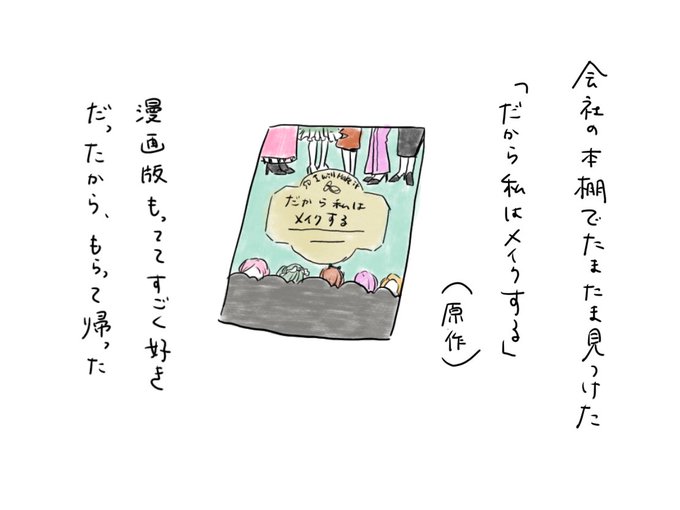 会社の本棚でたまたま見つけた
「だから私はメイクする」
(原作)
So I will Make it
だから私は
メイクする
漫画版もっててすごく好き
だったから、もらって帰った